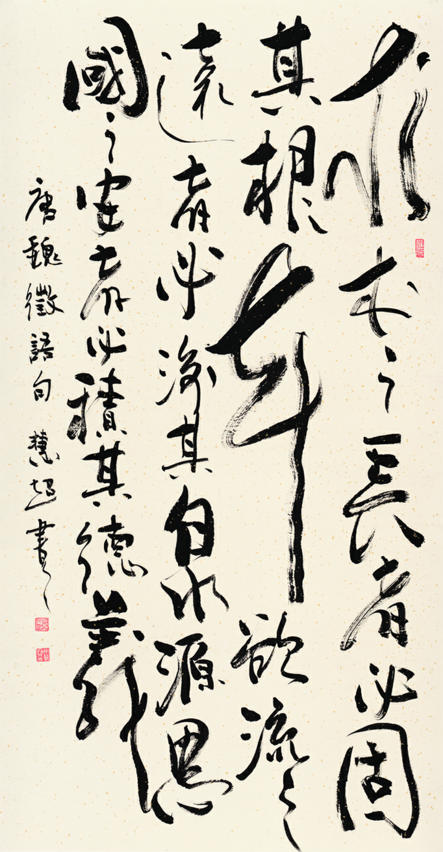 求木之長者必固
其根本欲流之
遠者必浚其泉源思
國之安者必積其德義
唐魏徵語句慧超書